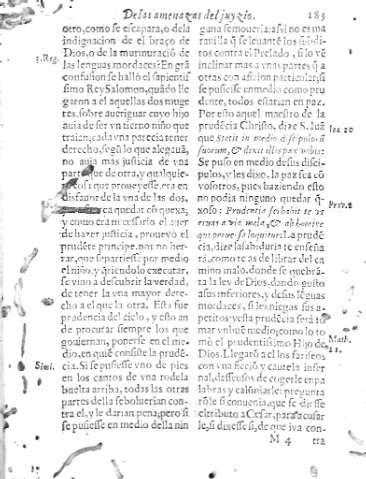 De las amenazas del juyzio. 183
otro, como se escapara, o de la
indignacion de el braço de
Dios, o de la murmuració de
las lenguas mordaces? En grã
3. Reg.
confusion se halló el sapientissi
mo Rey Salomon, quãdo lle
garon a el aquellas dos muge
res, sobre aueriguar cuyo hijo
auia de ser vn tierno niño que
traian, cada vna parecia tener
derecho, segũ lo que alegauã,
no auia mas justicia de vna
parte que de otra, y qualquie
que proueyesse, era en
disfauor de la vna de las dos,
quedar cõ quexa;
y como era necessario el auer
de hazer justicia, proueyo el
prudẽte principe, por no her-
rar, que se partiesse por medio
el niño, y quiendo executar,
se vino a descubrir la verdad,
de tener la vna mayor dere-
cho a el que la otra. Esta fue
prudencia del cielo, y esto an
de procurar siempre los que
gouiernan, ponerse en el me-
dio, en quiẽ consiste la prudẽ-
Simi.
cia. Si se pusiesse vno de pies
en los cantos de vna rodela
buelta arriba, todas las otras
partes della se boluerian con-
tra el, y le darian pena; pero si
se pusiesse en medio della nin
guna se moueria: assi no es ma
rauilla q̃ se leuantẽ los subdi-
tos contra el Prelado, si lo vẽ
inclinar mas a vnas partes q̃ a
otras con aficion particular; si
se pusiesse en medio como pru
dente, todos estarian en paz.
Por esto aquel maestro de la
prudẽcia Christo, dize S. Iuã
Ioa 20
que Stetit in medio discipulorũ
suorum, & dixit illis pax vobis:
Se puso en medio de sus disci-
pulos, y les dixo. la paz sea cõ
vosotros, pues haziendo esto
no podia ninguno quedar q̃-
Prou. 2
xoso: Prudentia seruabit te vt
eruas a via mala, & ab homine
qui peruersa loquitur: La prudẽ
cia, dize la sabiduria te enseña
rá, como te as de librar del ca
mino malo. donde se quebrã-
ta la ley de Dios, dando gusto
a tus inferiores, y de sus lẽguas
mordaces, si les niegas sus a-
petitos: y esta prudẽcia será to
mar vn buẽ medio; como lo to
mó el prudentissimo Hijo de
Math.
22.
Dios. Llegarõ a el los fariseos
con vna ficciõ y cautela infer
nal, desseosos de cogerle en pa
labras y calũniarle: pregunta
rõle si conuenia, que se diesse
el tributo a Cesar, para acusar
le, si dixesse si, de que iva con-
M 4 tra